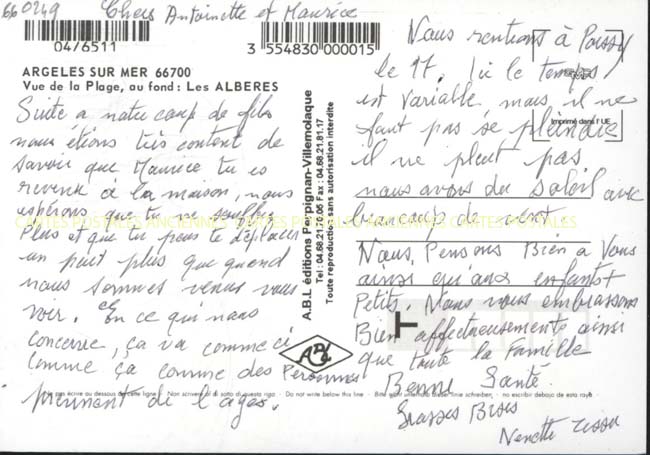 660249 Chers Antoinette et Maurice
04/6511
3 554830 000015
ARGELES SUR MER 66700
Vue de la Plage, au fond : Les ALBERES
Suite a notre coup de fils
nous étions très content de
savoir que Maurice tu es
revenu à la maison, nous
espérons que tu ne souffre
Plus et que tu peus te déplacer
un petit plus que quand
nous sommes venus vous
voir. En ce qui nous
concerne, ça va comme ci
comme ça comme des Personnes
prennant de l'ages.
A.B.L éditions Perpignan-Villemolaque
Tel : 04.68.21.70.06 Fax : 04.68.21.81.17
Toute reproduction sans autorisation interdite
Imprimé dans l'UE
Nous rentrions à Poissy
le 17. Ici le temps
est variable mais il ne
faut pas se pleindre
il ne pleut pas
nous avons du soleil avec
beaucoup de vent.
Nous, Pensons Bien a Vous
ainsi qu'aux enfants +
Petits. Nous vous embrassons
Bien affectueusement ainsi
que toute la Famille
Bonne Santé.
Grosses Bises
Nenette
CARTES POSTALES ANCIENNES CARTES POSTALES ANCIENNES CARTES POSTALES
pas écrire au dessous de cette ligne Non scrivere al di sotto da questa riga Do not write below this line Bitte nicht unterhalb dieser linie schreiben no escribir debajo de esta raya